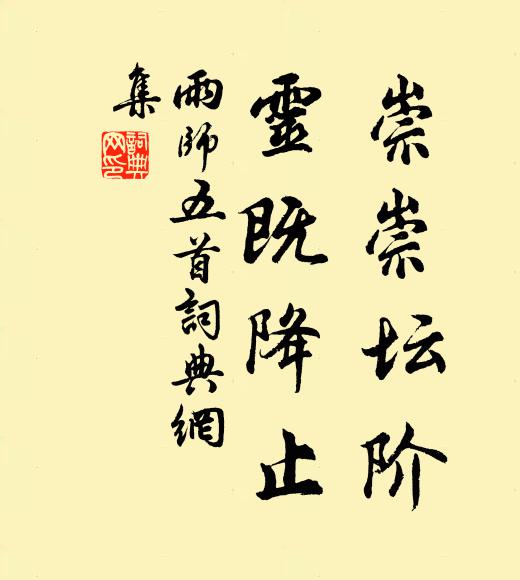 崇崇坛阶
靈既降止
雨師五首詞典網
集
詞典網印